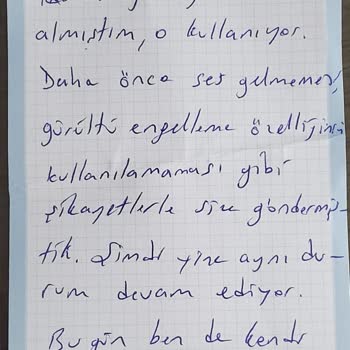 almıştım, o kullanıyor.
Daha önce ses gelmemesi,
gürültü engelleme özelliğinin
kullanılamaması gibi
şikayetlerle size göndermiş-
tik. Şimdi yine aynı du-
rum devam ediyor.
Bugün ben de kendi